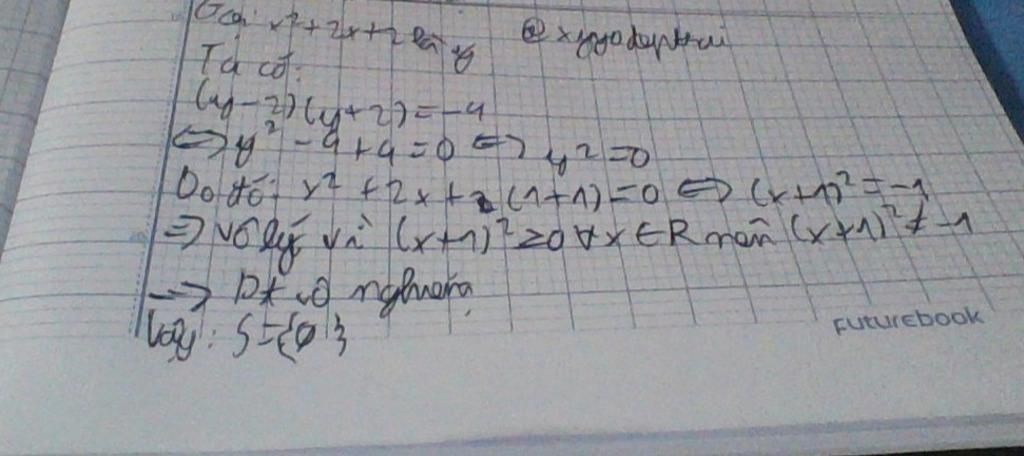 Gọi x² + 2x + 2 là y
Ta có:
(y - 2)(y + 2) = -4
<=> y² - 4 + 4 = 0 <=> y² = 0
Do đó: x² + 2x + (1+1) = 0 <=> (x+1)² = -1
=> vô lý vì (x+1)² ≥ 0 ∀x ∈ R nên (x+1)² ≠ -1
=> Pt vô nghiệm
Vậy: S = {∅}
FUTUREBOOK